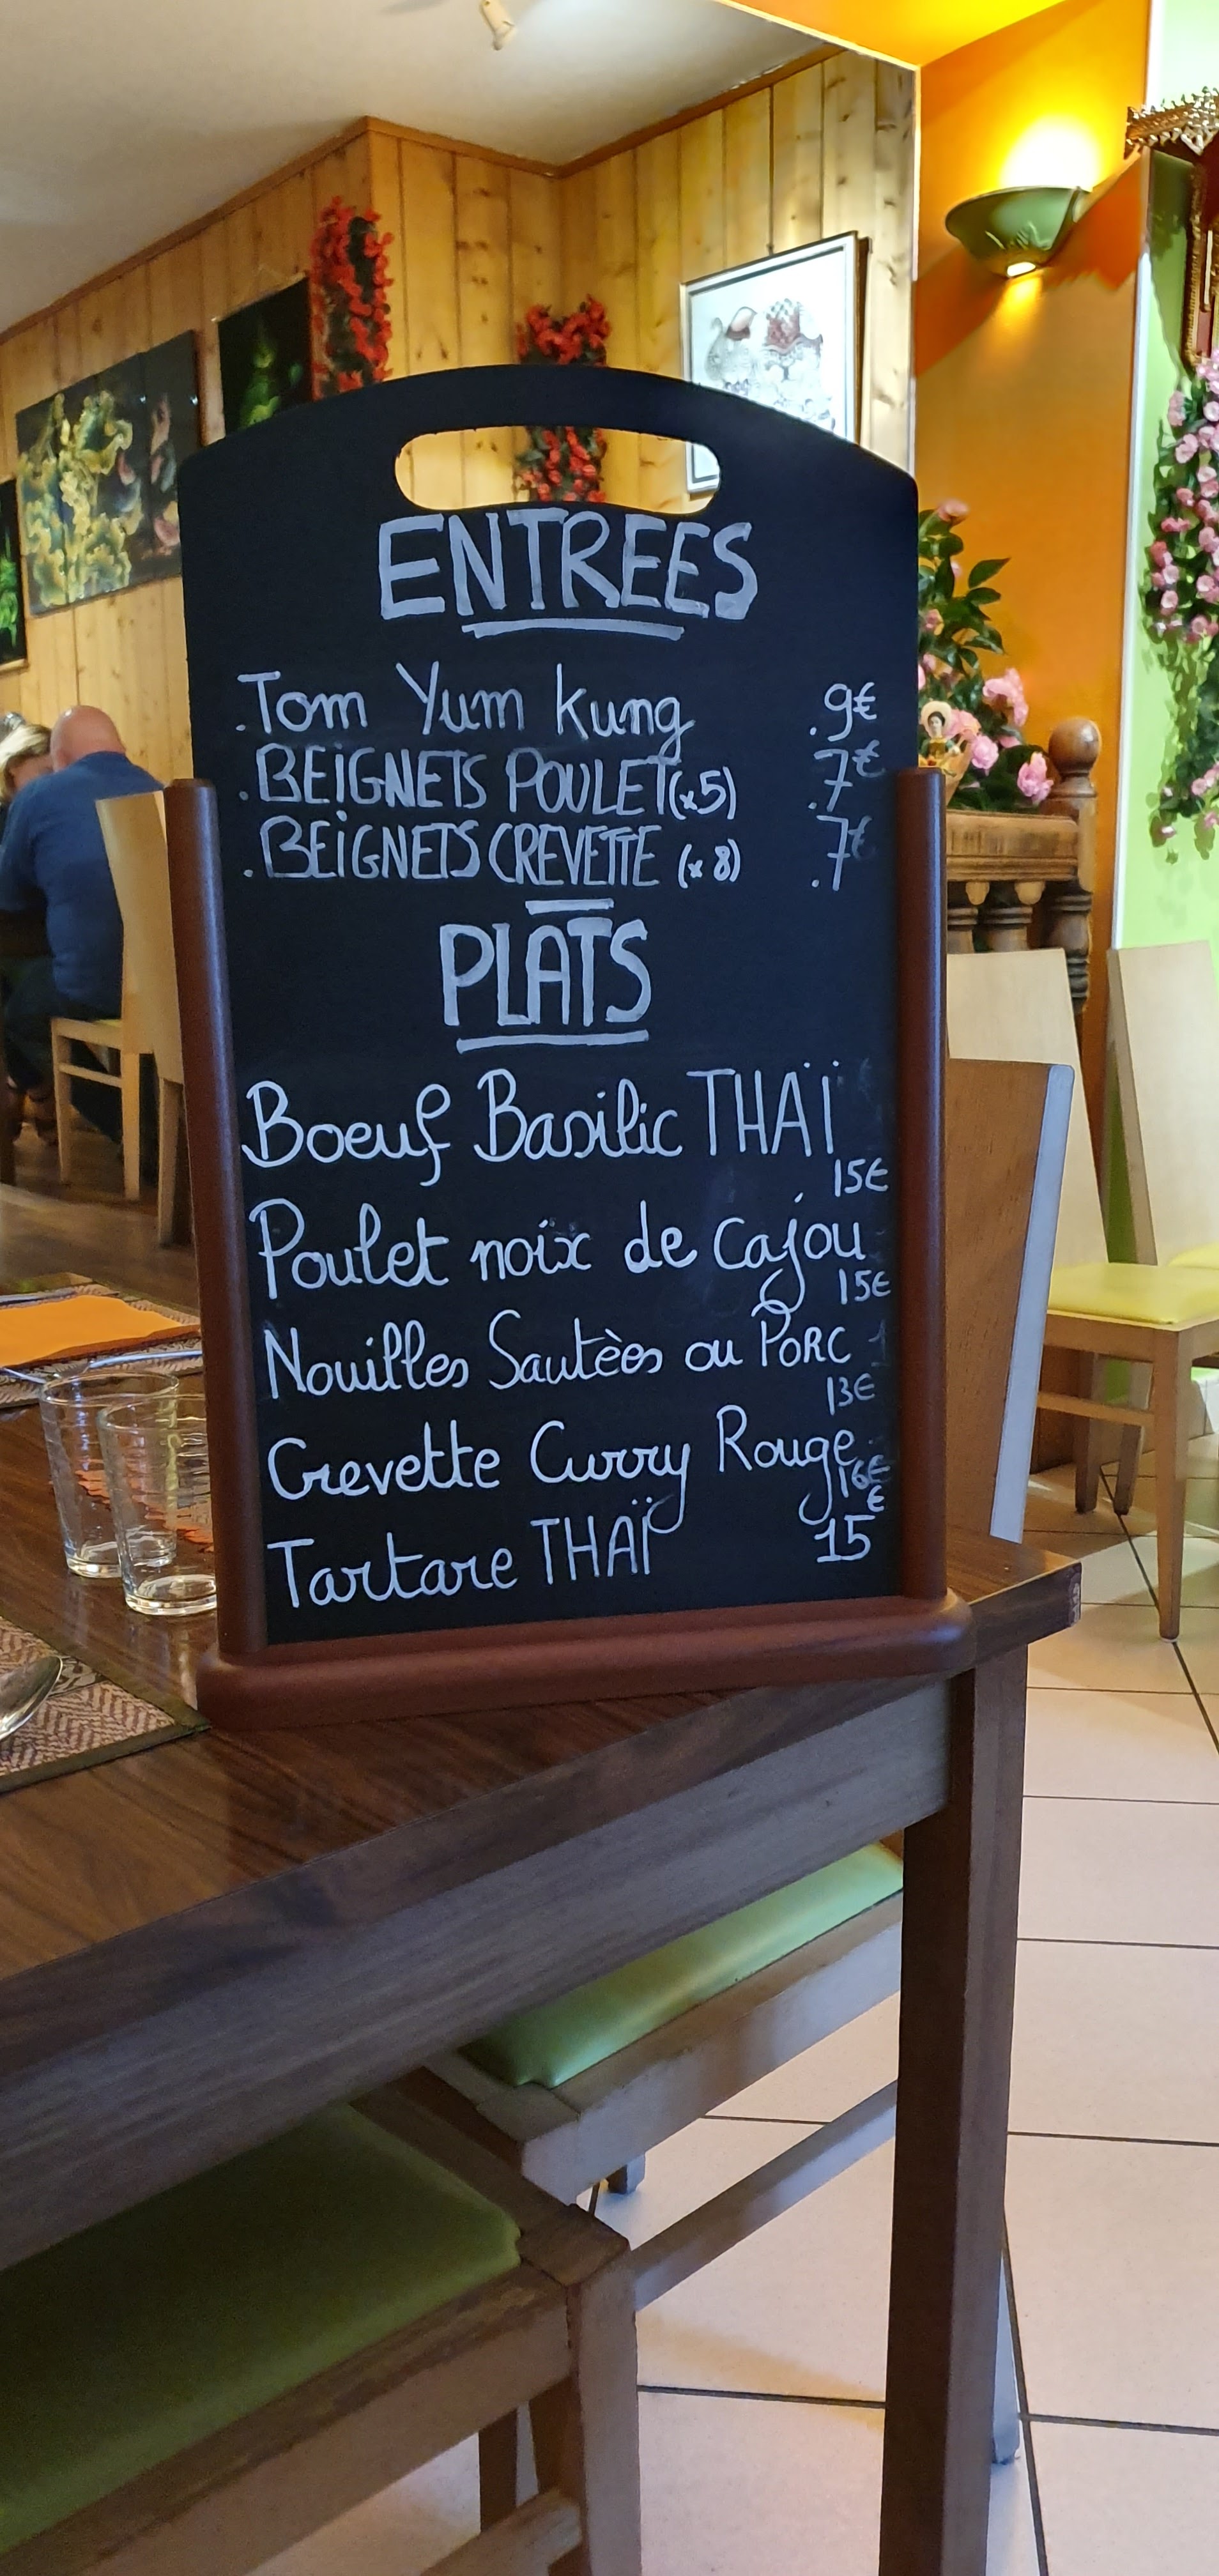 ENTREES
.Tom Yum kung .9€
.BEIGNETS POULET (x5) .7€
.BEIGNETS CREVETTE (x8) .7€
PLATS
Boeuf Basilic THAÏ
15€
Poulet noix de Cajou
15€
Nouilles Sautèes au PORC
13€
Crevette Curry Rouge
16€
Tartare THAÏ 15€